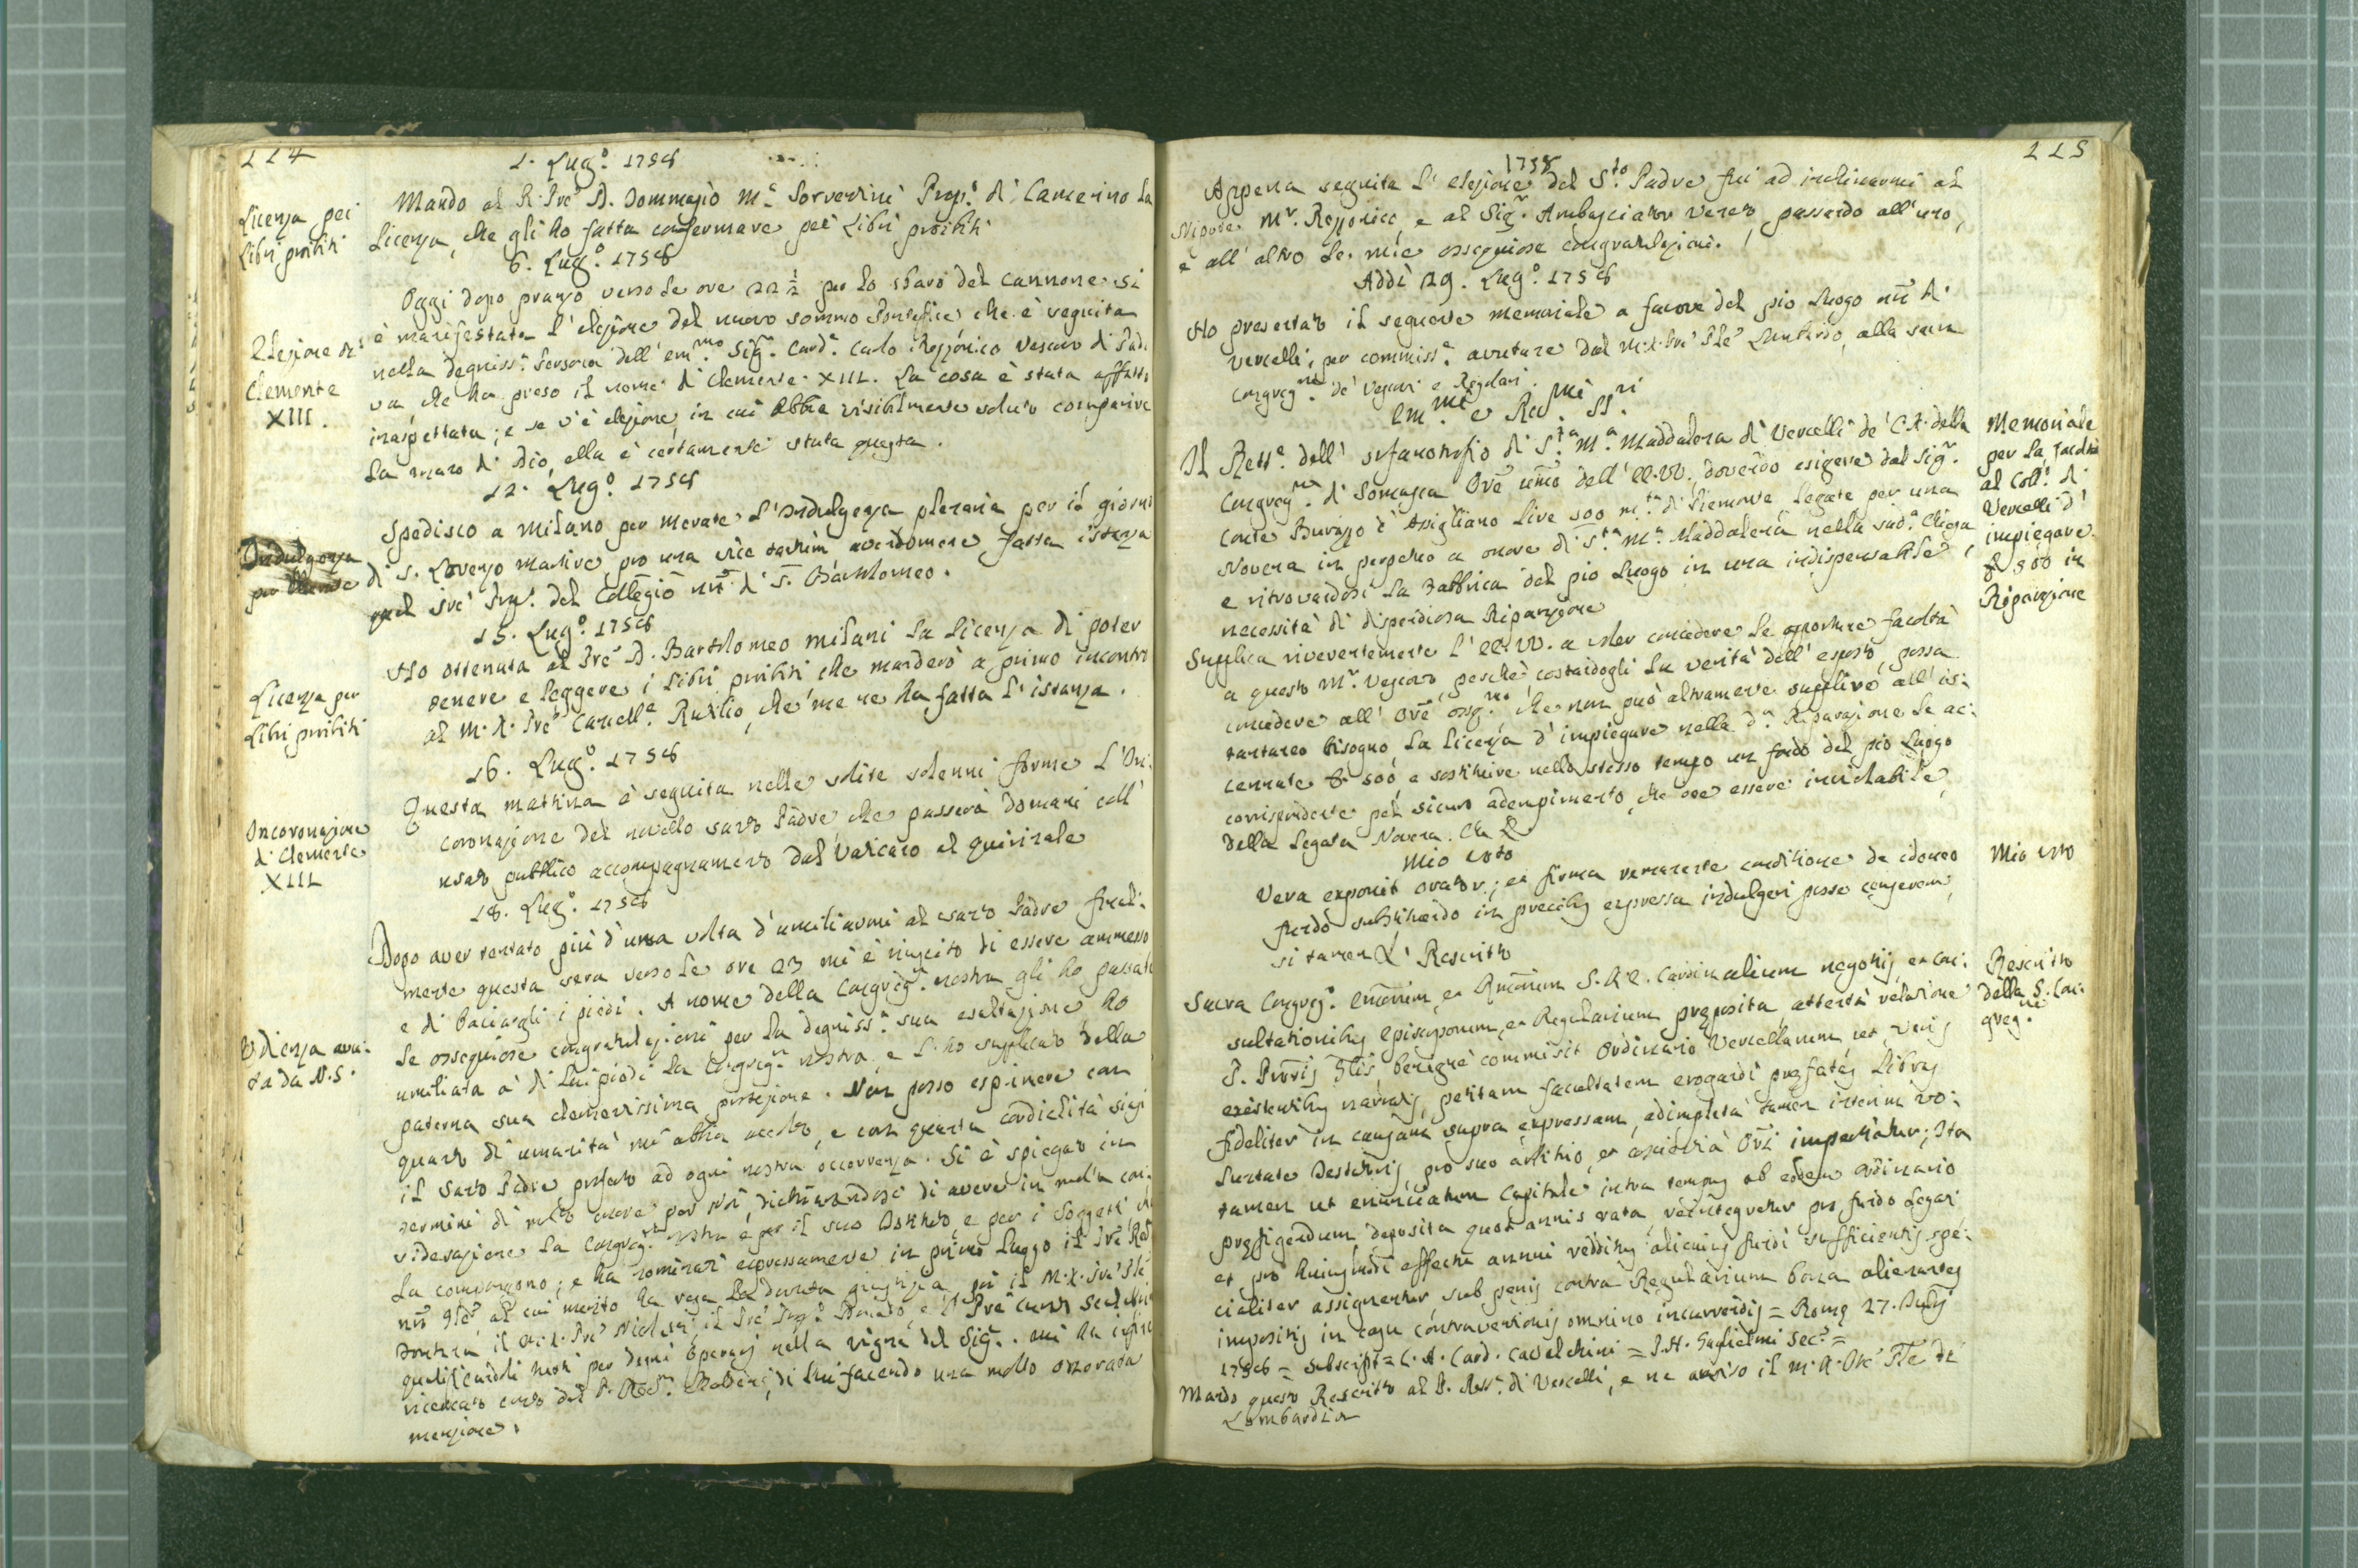 114
1. Lug.º 1758
Licenza pei
Libri proibiti
Mando al R. Pre D. Tommaso M.ª Prep.º di Camerino la
Licenza, che gli ho fatta confermare pei Libri proibiti
6. Lug.º 1758
Elezione di
Clemente
XIII.
Oggi dopo pranzo verso le ore 22 ½ per lo sbaro del cannone si
è manifestata l'elezione del nuovo sommo Pontefice che è seguita
nella degniss.ª Persona dell'em.mo Sig.r Card.e Carlo Rezzonico Vescovo di Pado
va, che ha preso il nome di Clemente XIII. La cosa è stata affatto
inaspettata; e se v'è elezione, in cui abbia visibilmente voluto comparire
la mano di Dio, ella è certamente stata questa.
12. Lug.º 1758
Indulgenza
per
Spedisco a Milano per Merate l'Indulgenza plenaria per il giorno
di S. Lorenzo Martire pro una vice tantum avendomene fatta istanza
quel Pre Prep.º del Collegio nr̃o di S. Bartolomeo.
15. Lug.º 1758
Licenza per
Libri proibiti
Ho ottenuta al Pre D. Bartolomeo Milani la Licenza di poter
tenere e leggere i Libri proibiti che manderò a primo incontro
al M. R. Pre Cancell.e Rutilio, che me ne ha fatta l'istanza.
16. Lug.º 1758
Incoronazione
di Clemente
XIII
Questa mattina è seguita nelle solite solenni forme l'In:
coronazione del novello santo Padre che passerà domani coll'
usato pubblico accompagnamento dal Vaticano al Quirinale
18. Lug.º 1758
Udienza avu:
ta da N.S.
Dopo aver tentato più d'una volta d'umiliarmi al santo Padre final:
mente questa sera verso le ore 23 mi è riuscito di essere ammesso
e di baciargli i piedi. A nome della Congreg.ne nostra gli ho passate
le ossequiose congratulazioni per la degniss.ª sua esaltazione, ho
umiliata a' di lui piedi la Congreg.ne nostra, e l'ho supplicato della
paterna sua clementissima protezione. Non posso esprimere con
quanto di umanità mi abbia accolto, e con quanta cordialità siasi
il Santo Padre proferto ad ogni nostra occorrenza. Si è spiegato in
termini di molto amore per Noi, dichiarandosi di avere in molta con:
siderazione la Congreg.ne nostra e per il suo Istituto, e per i Soggetti che
la compongono; e ha nominati espressamente in primo luogo il Pre Rev.
nr̃o Gle, al cui merito ha resa la dovuta giustizia, poi il M. R. Pre Gle
il M. R. Pre Nicolai, il Pre Prep.º Donado, e il Pre
qualificandoli tutti per degni Operarj nella vigna del Sig.re. Mi ha infine
ricercato conto del P. di lui facendo una molto onorata
menzione.
115
1758
Appena seguita l'elezione del S.to Padre fui ad inchinarmi al
Nipote M.r Rezzonico, e al Sig.r Ambasciator Veneto, passando all'uno,
e all'altro le mie ossequiose congratulazioni.
Addì 29. Lug.º 1758
Ho presentato il seguente memoriale a favore del pio Luogo nr̃o di
Vercelli, per commiss.e avutane dal M. R. Pre Gle Lombardo, alla sacra
Congreg.ne de' Vescovi e Regolari.
Em.mi e Rev.mi SS.ri
Memoriale
per la facoltà
al Coll.º di
Vercelli d'
impiegare
£ 500 in
Riparazione
Il Rett.e dell'orfanotrofio di S.ta M.ª Maddalena di Vercelli de' C.R. della
Congreg.ne di Somasca Ore umo dell'EE.VV. dovendo esigere dal Sig.r
Conte Buronzo d'Asigliano Lire 500 m.ta di Piemonte legate per una
Novena in perpetuo a onore di S.ta M.ª Maddalena nella sud.ª Chiesa
e ritrovandosi la Fabbrica del pio Luogo in una indispensabile
necessità di dispendiosa Riparazione
Supplica riverentemente l'EE.VV. a voler concedere le opportune facoltà
a questo M.r Vescovo, perchè costandogli la verità dell'esposto, possa
concedere all'Ore oss.mo che non può altramente supplire all'is:
tantaneo bisogno la Licenza d'impiegare nella d.ª Riparazione le ac:
cennate £ 500, e sostituire nello stesso tempo un fondo del pio Luogo
corrispondente pel sicuro adempimento, che dee essere inviolabile,
della legata Novena. Che &
Mio voto
Mio voto
Vera exponit orator; et firma remanente conditione de idoneo
fundo substituendo in precibus expressa indulgeri posse censerem,
si tamen &. Rescritto
Rescritto
della S. Con:
greg.ne
Sacra Congreg.º Emorum, et Rmorum S.R.E. Cardinalium negotijs, et con:
sultationibus Episcoporum, et Regularium preposita, attenta relatione
P. Pro͞ris Glis benigne commisit Ordinario Vercellarum, ut, veris
existentibus narratis, petitam facultatem erogandi prefatas Libras
fideliter in causam supra expressam, adimpleta tamen interim vo:
luntate Testatoris, pro suo arbitrio, et conscientia Ori impertiatur; Ita
tamen ut enunciatum Capitale intra tempus ab eodem Ordinario
prefigendum deposita quot annis rata reintegretur pro fundo Legati
et pro huiusmodi effectu annui redditus alicuius fundi sufficientis spe:
cialiter assignentur, sub penis contra Regularium bona alienantes
impositis in casu contraventionis omnino incurrendis = Rome 27. Julij
1758 = Subscript = C. A. Card. Cavalchini = P. A. Guglielmi Sec.s =
Mando questo Rescritto al P. Rett.e di Vercelli, e ne avviso il M. R. Pre Gle di
Lombardia